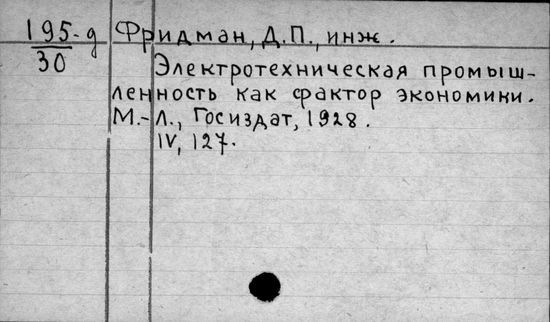 195-д Фридман, Д.П., инж.
30
Электротехническая промыш-
ленность как фактор экономики.
М.-Л., Госиздат, 1928.
IV, 127.